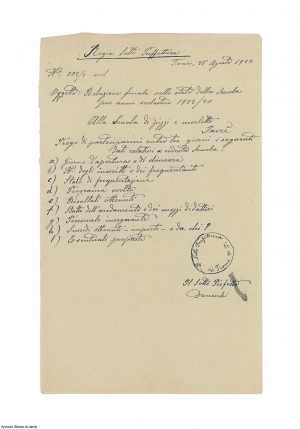 Regia Sotto Prefettura
25 Agosto 1923
Oggetto: Relazione finale sullo stato della Scuola
per anno scolastico 1922/23
Alla Scuola di pizzi e merletti
Prego di parteciparmi entro tre giorni i seguenti
dati relativi a codesta Scuola:
a) Giorno d'apertura e di chiusura
b) N. degli inscritti e dei frequentanti
c) Stato di frequentazione
d) Programma svolto
e) Risultati ottenuti
f) Stato dell'arredamento e dei mezzi didattici
g) Personale insegnante
h) Sussidi ottenuti - importo - e da chi?
i) Eventuali proposte
Il Sotto Prefetto
Archivio Storico di